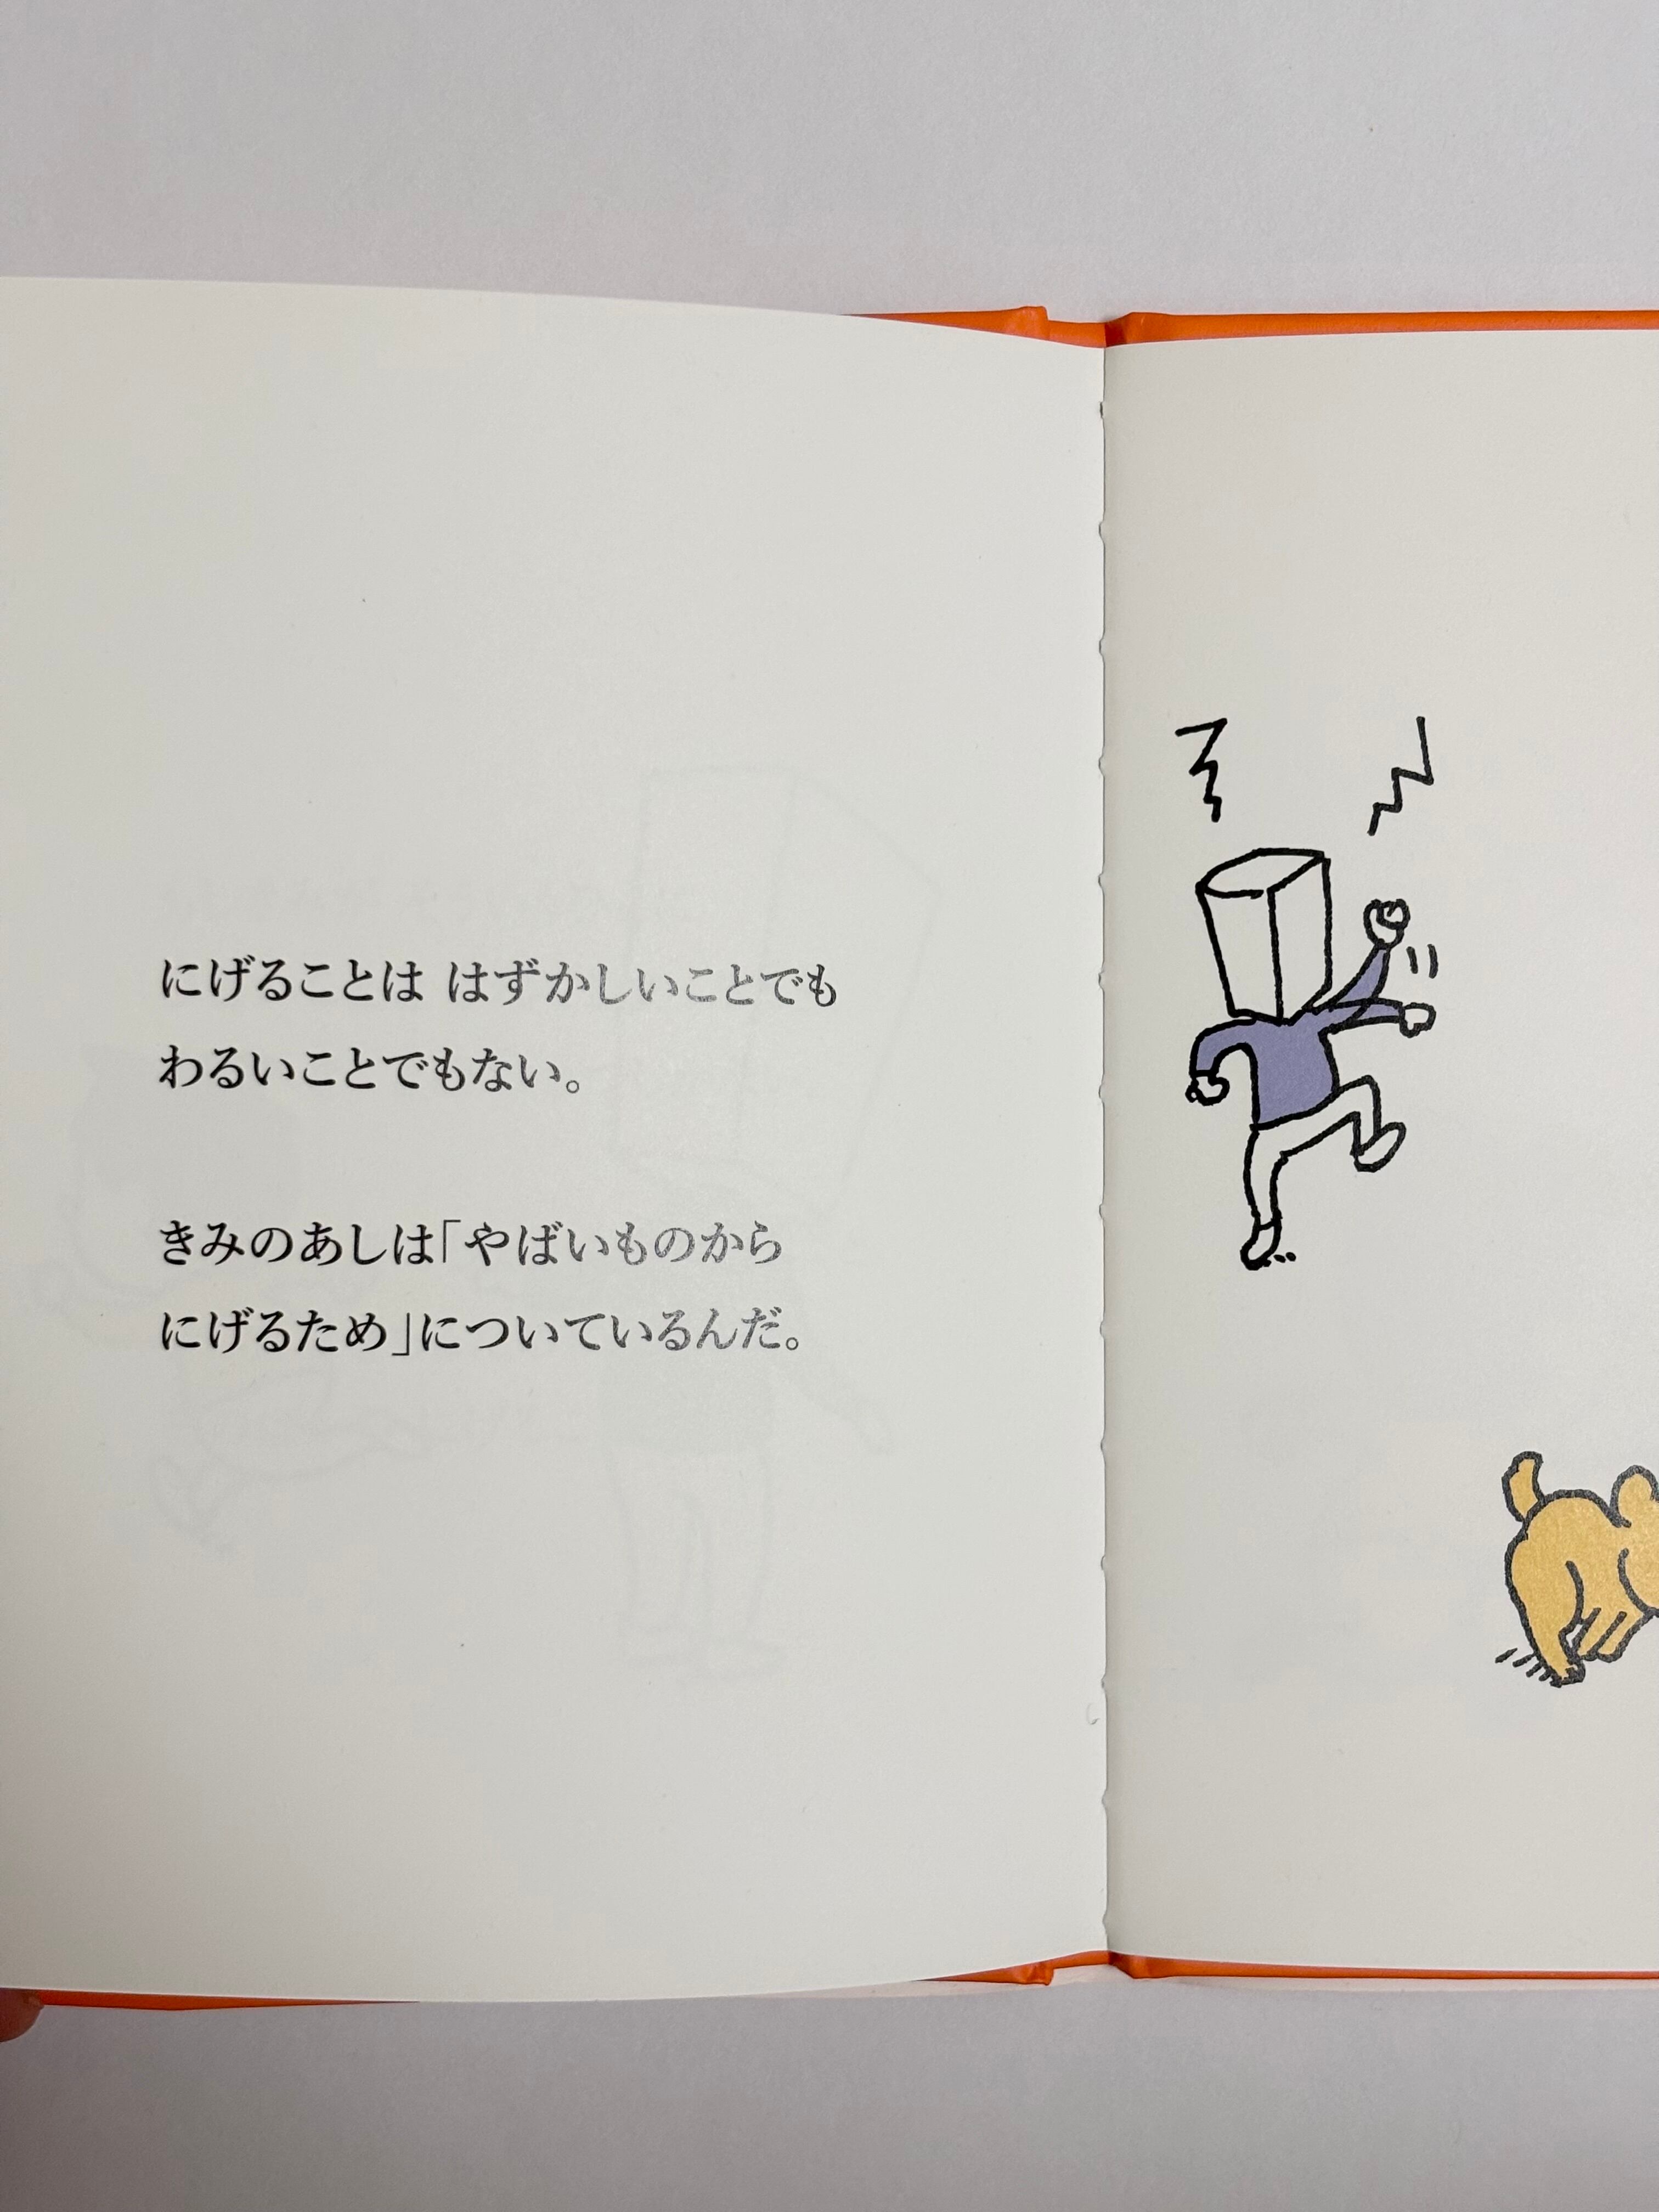 にげることは はずかしいことでも
わるいことでもない。
きみのあしは「やばいものから
にげるため」についているんだ。